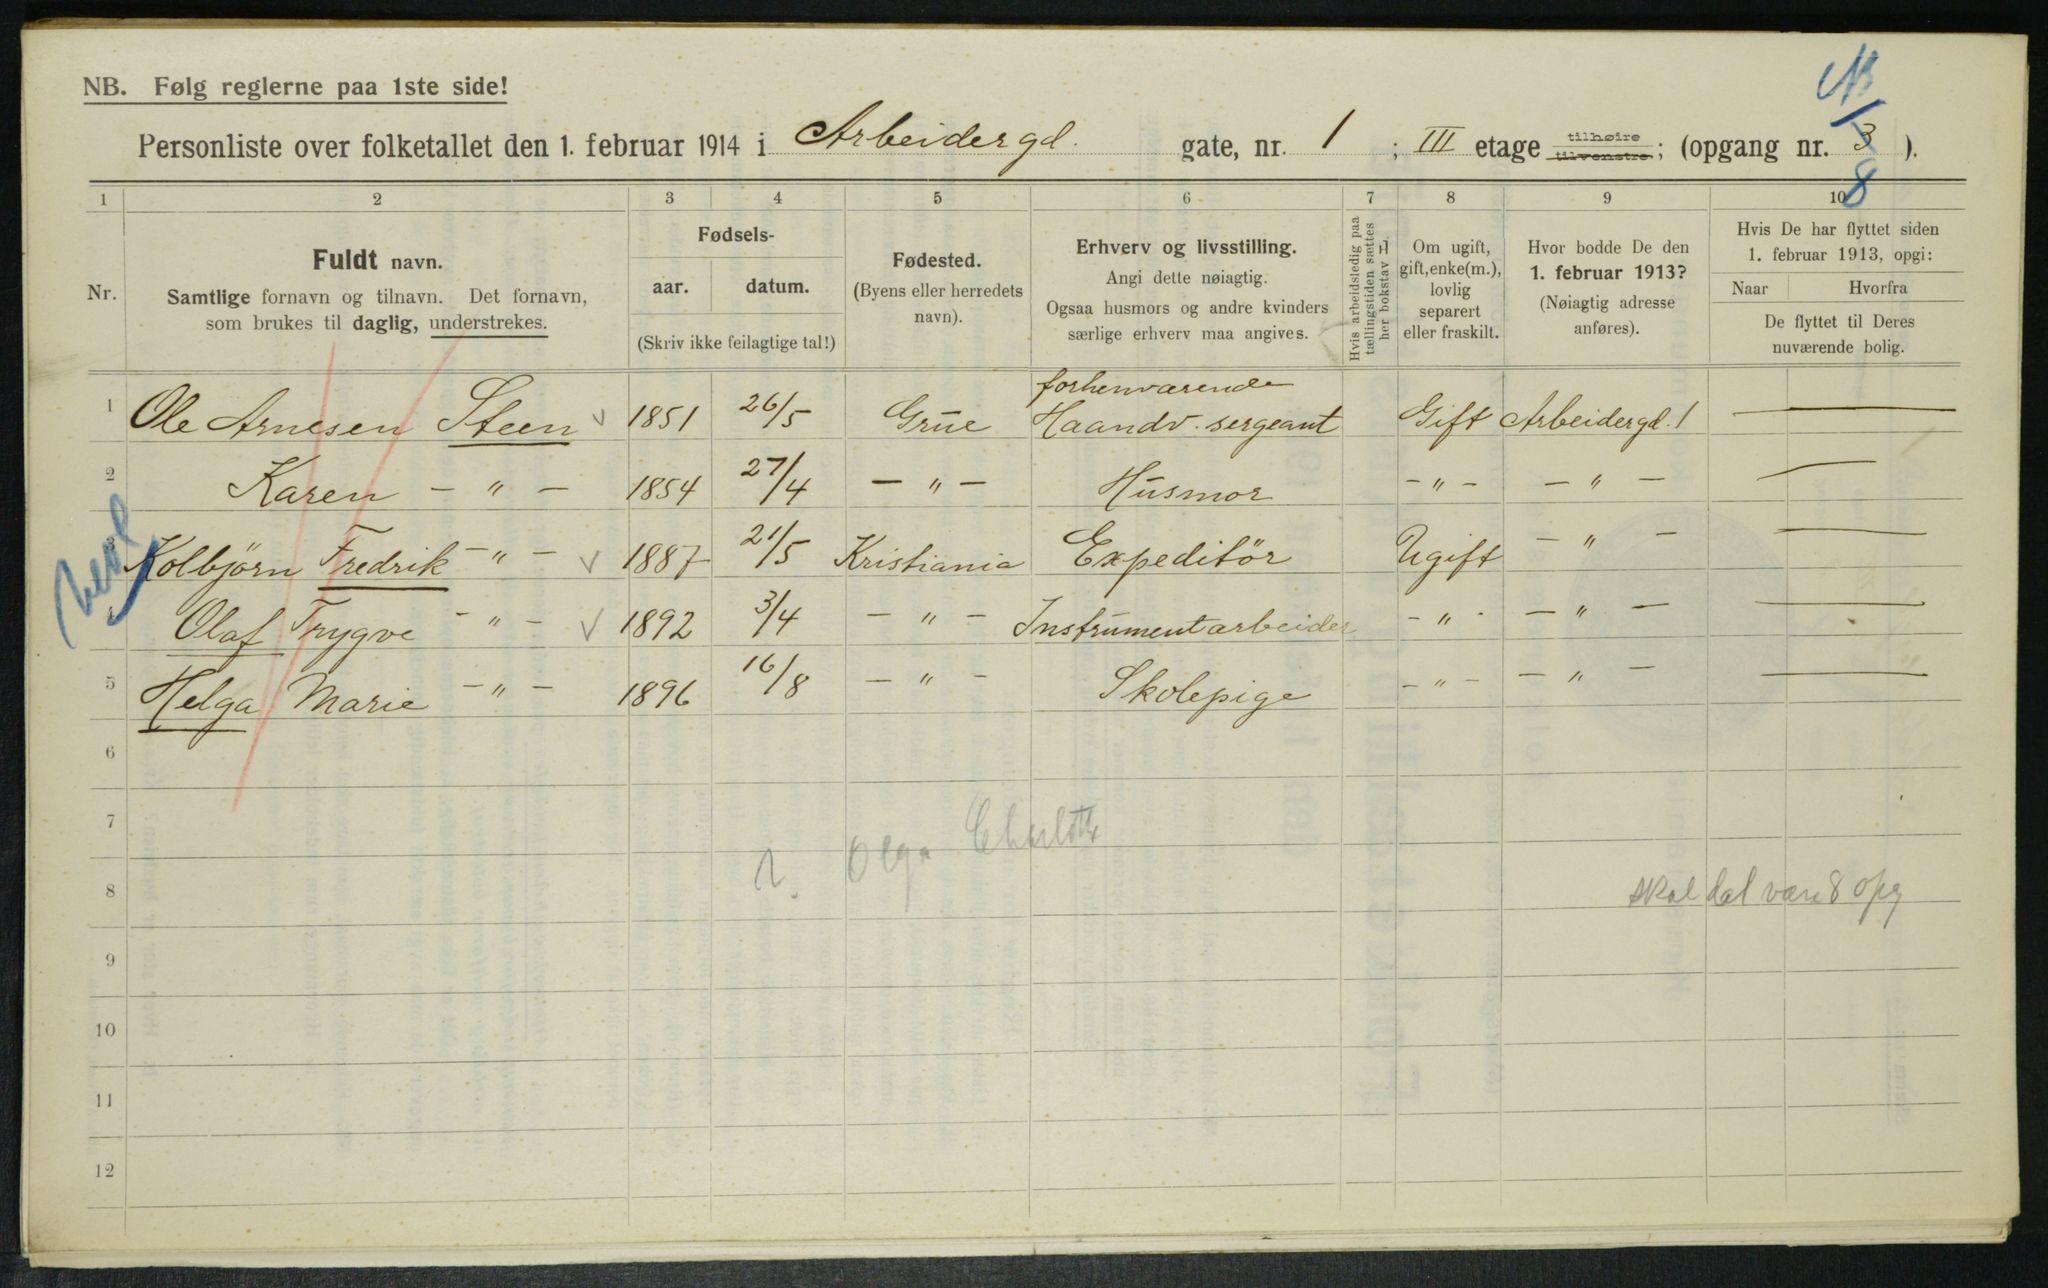 NB. Følg reglerne paa 1ste side!
Personliste over folketallet den 1. februar 1914 i Arbeidergd. gate, nr. 1 ; III etage tilhøire tilvenstre; (opgang nr. 3 8 ).
1 2 3 4 5 6 7 8 9 10
Nr.
Fuldt navn.
Samtlige fornavn og tilnavn. Det fornavn,
som brukes til daglig, understrekes.
Fødsels-
aar. datum.
(Skriv ikke feilagtige tal!)
Fødested.
(Byens eller herredets
navn).
Erhverv og livsstilling.
Angi dette nøiagtig.
Ogsaa husmors og andre kvinders
særlige erhverv maa angives.
Hvis arbeidsledig paa
tællingstiden sættes
her bokstav L
Om ugift,
gift, enke(m.),
lovlig
separert
eller fraskilt.
Hvor bodde De den
1. februar 1913?
(Nøiagtig adresse
anføres).
Hvis De har flyttet siden
1. februar 1913, opgi:
Naar Hvorfra
De flyttet til Deres
nuværende bolig.
1 Ole Arnesen Steen 1851 26/5 Grue forhenværende
Haandv. sergeant Gift Arbeidergd. 1 —
2 Karen — " — 1854 27/4 — " — Husmor — " — — " — —
3 Kolbjörn Fredrik — " — 1887 21/5 Kristiania Expeditör Ugift — " — —
4 Olaf Trygve — " — 1892 3/4 — " — Instrumentarbeider — " — — " — —
5 Helga Marie — " — 1896 16/8 — " — Skolepige — " — — " — —
6
7
Olga
8
skal det være 8 opg
9
10
11
12